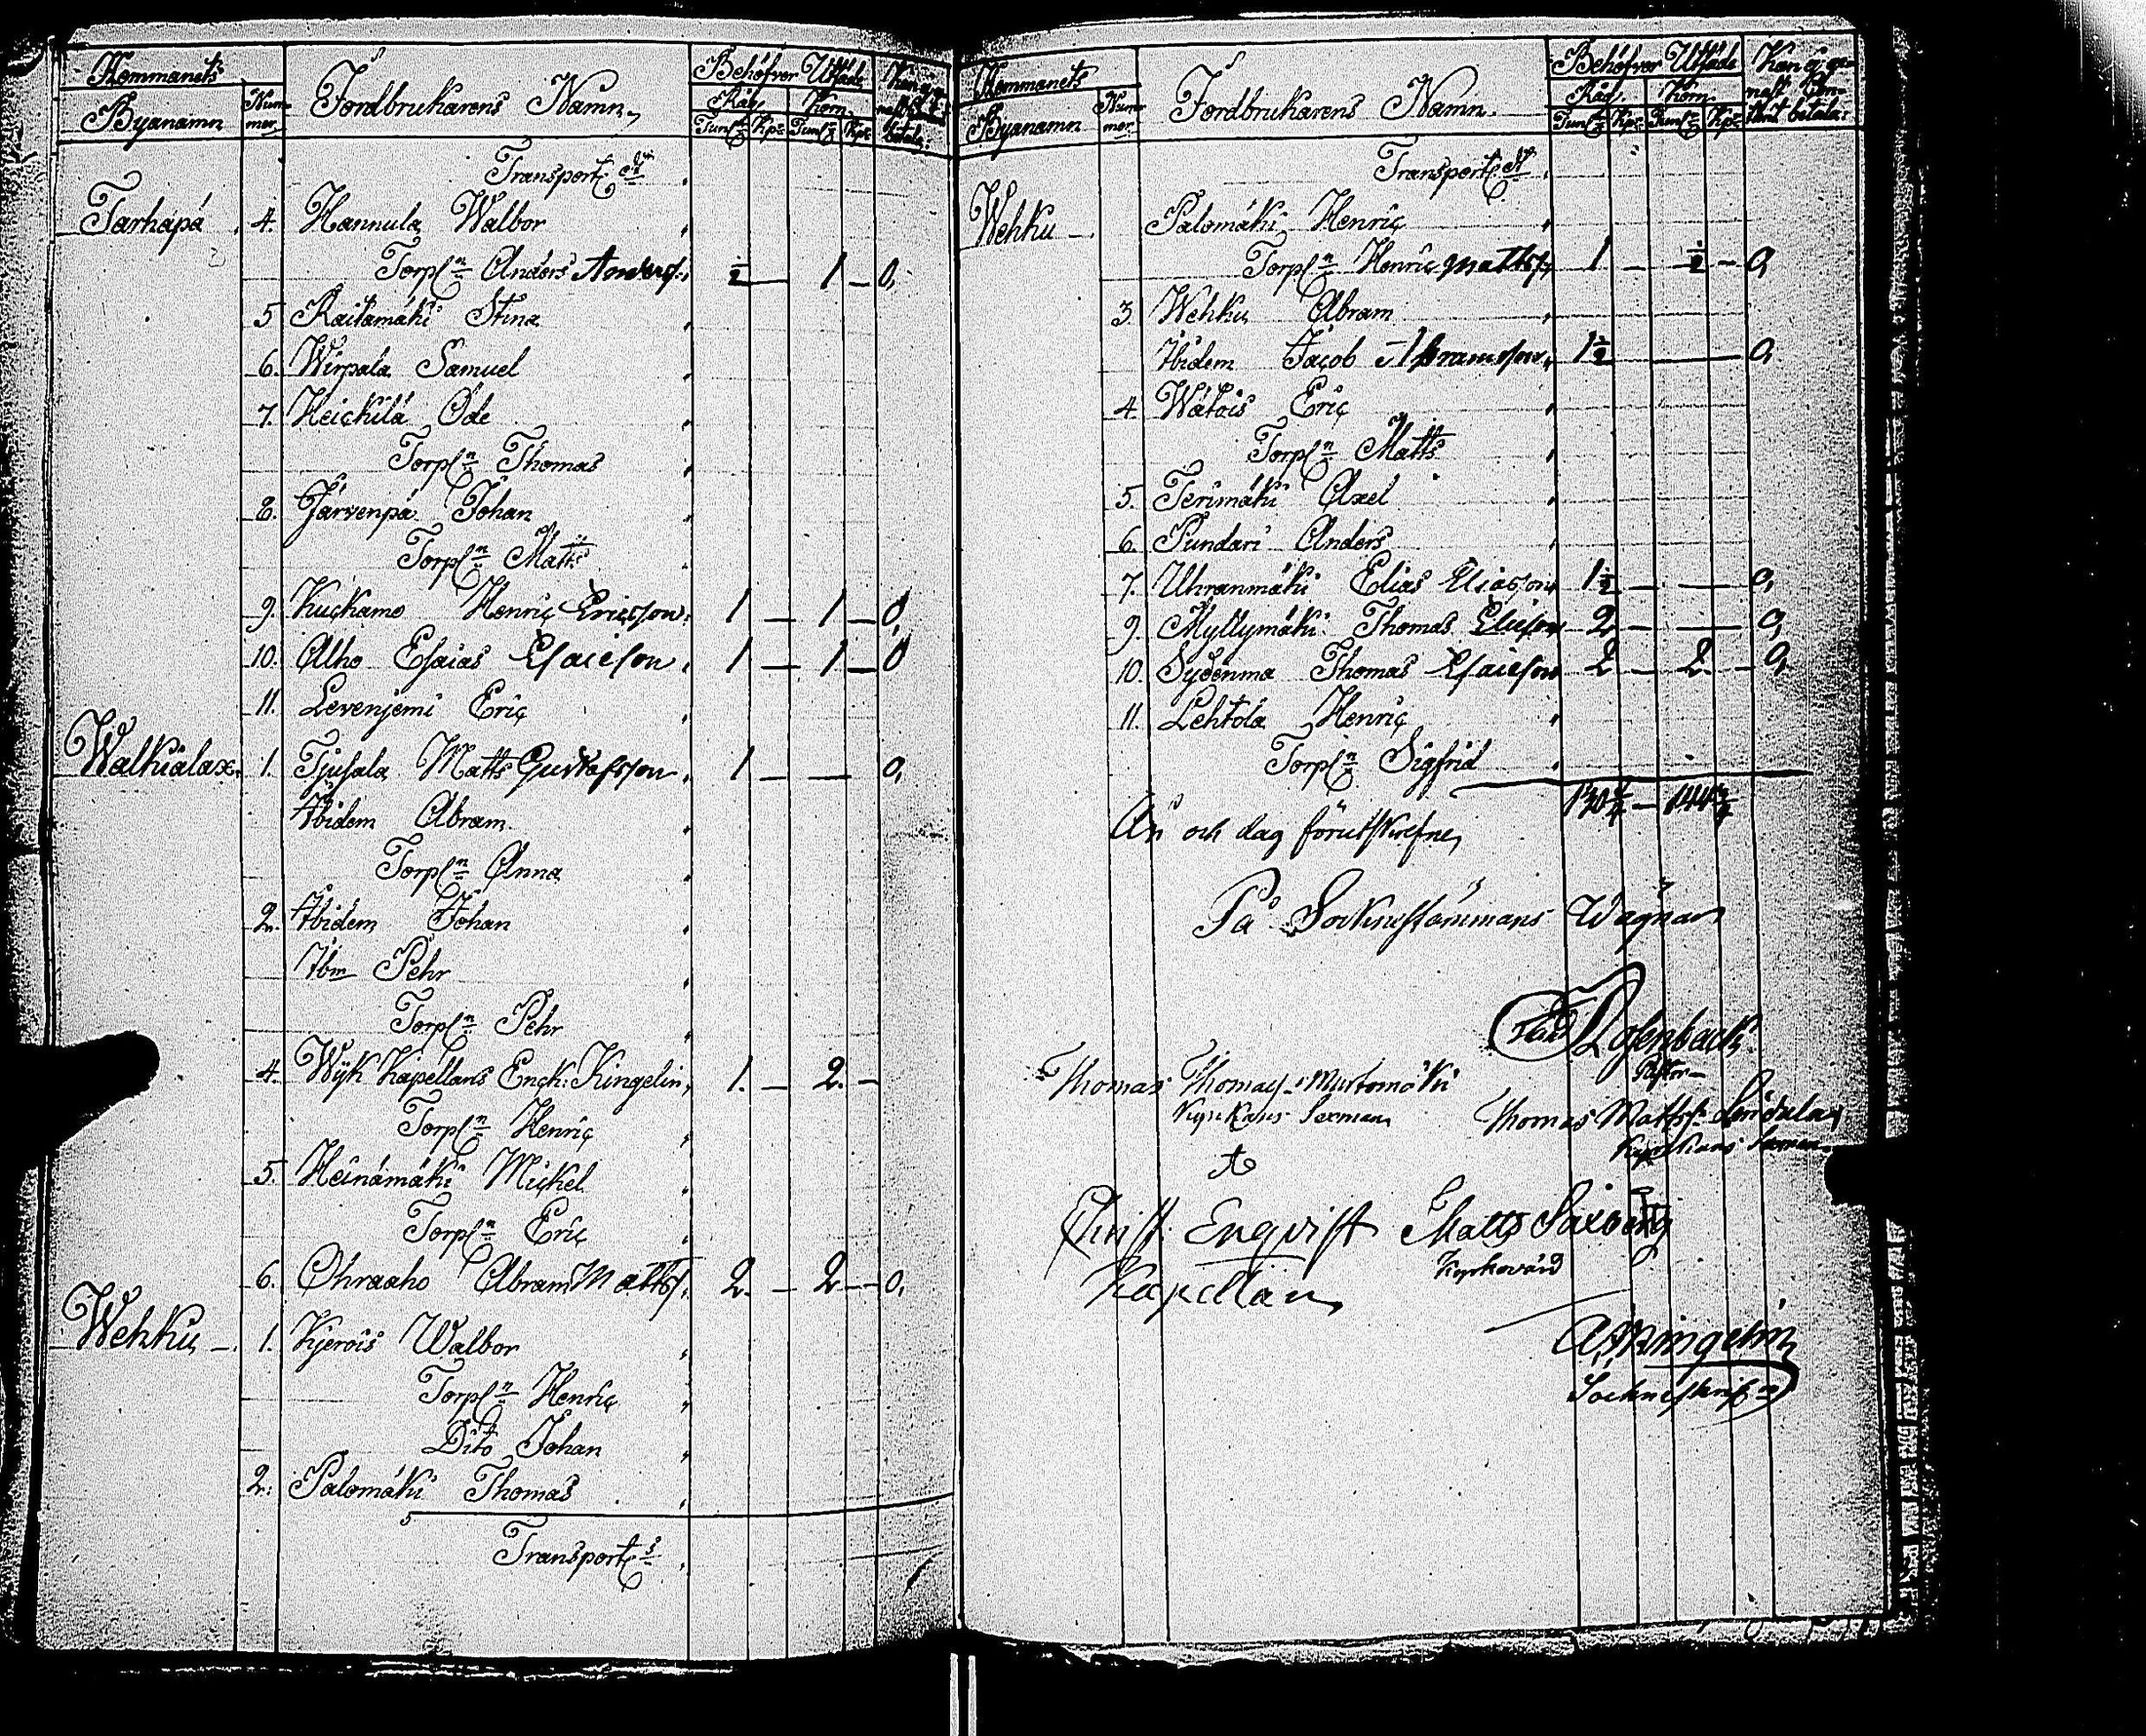 Hemmanets
Byanamn
Num-
mer
Jordbrukarens Namn
Behöfver Utsäde
Råg
Korn
Tun: Kpr: Tun: Kpr:
betala:
Transport
Tarhapä 4. Hannula Walbor
Torp: Anders Anders: ½ — 1 — 0,
5 Raitamäki Stina
6. Wirpala Samuel
7. Heickilä Ode
Torp: Thomas
8. Järvenpä Johan
Torp: Matts
9. Kuckamo Henric Ericsson 1 — 1 — 0,
10. Alho Esaias Esaieson 1 — 1 — 0
11. Levenjemi Eric
Walkialax 1. Tjusala Matts Gustafsson 1 — — 0,
Ibidem Abram
Torp: Anna
2. Ibidem Johan
Ibm Pehr
Torp: Pehr
4. Wijk Kapellans Enck: Kingelin 1. — 2. —
Torp: Henric
5. Heinämäki Mickel
Torp: Eric
6. Ohraaho Abram Matts: 2. — 2 — 0,
Wehku 1. Kjerois Walbor
Torp: Henric
Dito Johan
2. Palomäki Thomas
Transport
Hemmanets
Byanamn
Num-
mer
Jordbrukarens Namn
Behöfver Utsäde
Råg Korn
Tun: Kpr: Tun: Kpr:
Kan genast
betala:
Transport
Wehku Palomäki Henric
Torp: Henric Matts: 1 — ½ — 0,
3. Wehku Abram
Ibidem Jacob Abramson 1½ — 0,
4. Wätois Eric
Torp: Matts
5. Terimäki Axel
6. Pundari Anders
7. Uhranmäki Elias Eliason 1½ — — 0,
9. Myllymäki Thomas 2 — — 0,
10. Sydenma Thomas Esaieson 2 — 2 — 0,
11. Lehtola Henric
Torp: Sigfrid
År och dag förutskrefne,
På Socknestämmans Wägnar
Thomas Murtomäki
Kyrkans Sexman
Thomas Matts:
Kyrkans Sexman
Christ. Enqvist
Kapellan
Matts Saxberg
Kyrkovärd
Kingelin